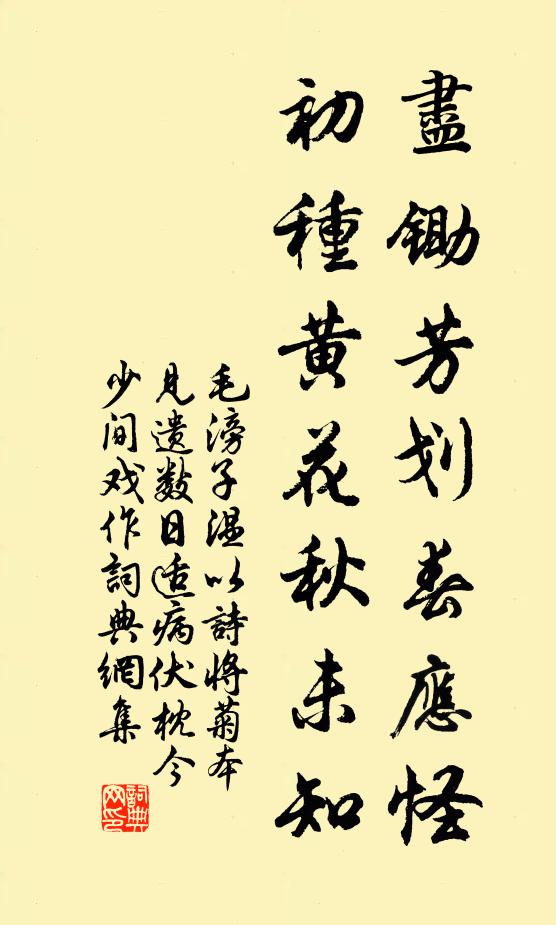 盡鋤芳划春應怪
初種黄花秋未知
毛滂子温以詩將菊本
見遗数日适病伏枕今
少间戏作詞典網集
詞典
网印